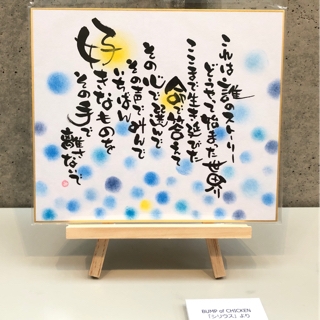 これは誰のストーリー
どうやって始まった世界
ここまで生き延びた
命で答えて
その心で選んで
その声で叫んで
いちばん
好きなものを
その手で
離さないで
BUMP of CHICKEN
「シリウス」より